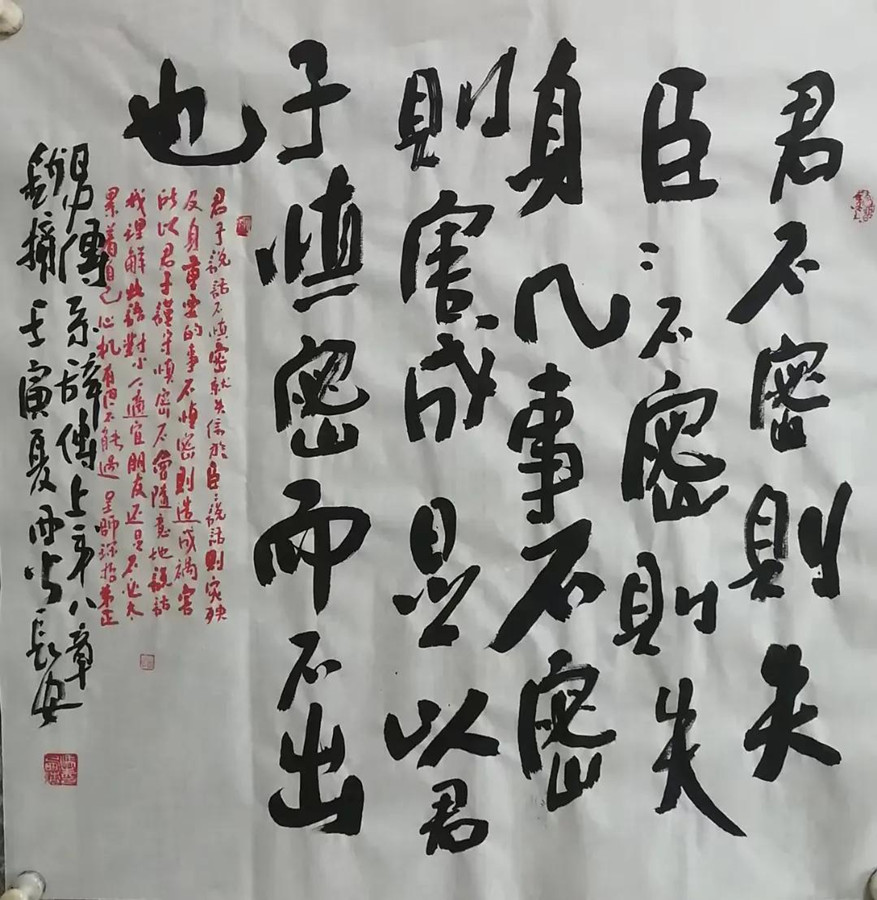 君不密則失
臣臣不密則失
身几事不密
則害成是以君
子慎密而不出
也
君子說話不慎密就失信於臣臣說話則灾殃
及身重要的事不慎密則造成禍害
所以君子謹守慎密不會隨意地說話
我理解此語對小人適宜朋友还是不必太
累着自己心机有但不能過
易傳系辞傳上第八章
摘壬寅夏西安長安